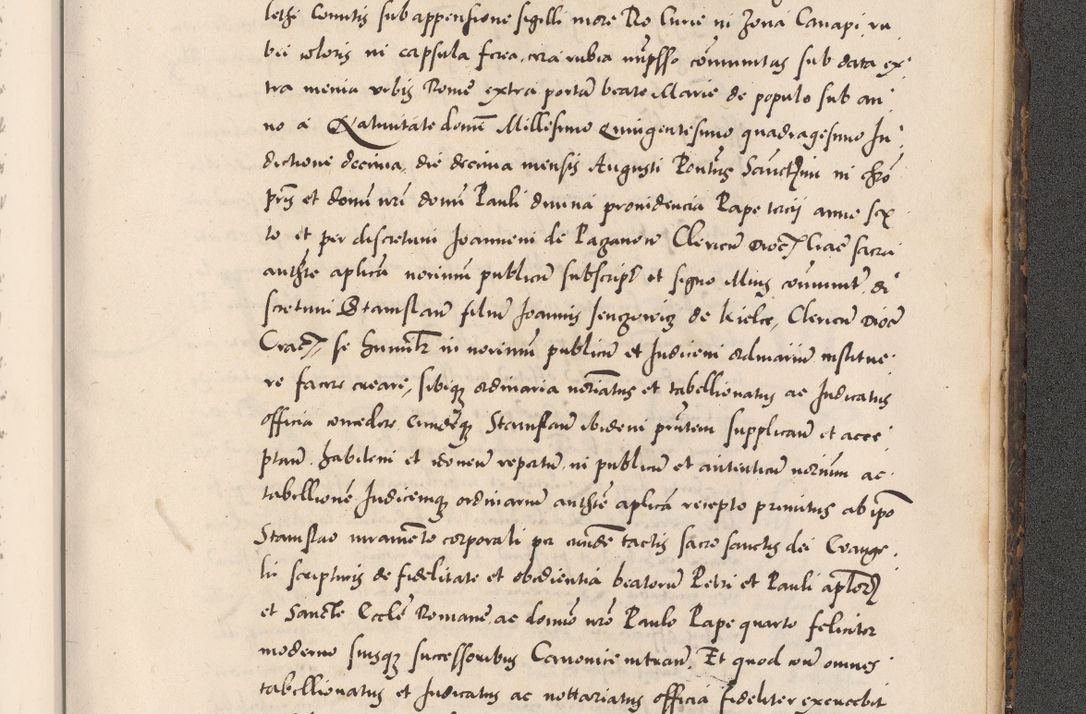 lethi Comitis sub appensione sigilli more Ro Curie in Zona Canapi ru
bei coloris in capsula ferea, cera rubea impsso coīmunitas sub data ex
tra menia urbis Rome extra portā beate Marie de populo sub an
no á Natiuitate domī Millesimo Quingentesimo quadragesimo In
dictione decima, die decima mensis Augusti Pontus Sanctssimi in chrō
prīs et domī nrī domī Pauli diuina prouidencia Pape tercij anno sex
to et per discretum Joannem de Paganow Clericū dioc sacra
authte aplicā norium publicū subscript et signo illius cōmunit, di
scretum Stanislaū filiū Joannis de Kielce, Clericū dioc
Crac, se humilr in norium publicū et Judicem ordinariū instituē
re facere creare, sibiqz ordinaria notriatus et tabellionatus ac Judicatus
officia concedere, eundēqz Stanislaū ibidem prūtem supplicaū et acce
ptaū, habilem et idoneū repertū in publicū et autenticū norium ac
tabellionē Judicemqz ordinariū authte aplicā recepto primitus ab ipō
Stanislao iuramēto corporali per eundē tactis sacro sanctis dei Euange
lii scripturis de fidelitate et obedientia beatorū Petri et Pauli aplorz
et Sancte Eccle Romane ac domīo nrō Paulo Pape quarto feliciter
moderno suisqz successoribus Canonice intraū, Et quod omnes
tabellionatus et Judicatus ac nottariatus officia fideliter exercebit